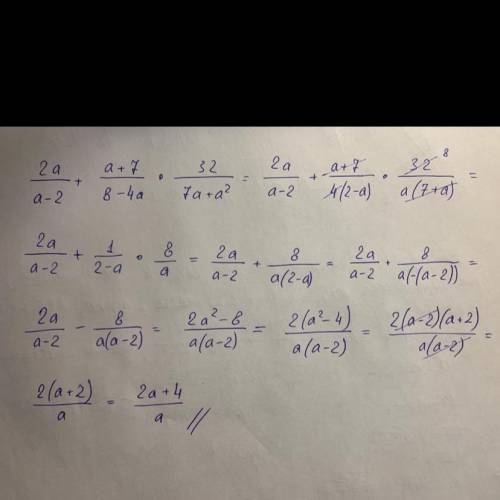 2a/(a-2) + (a+7)/(8-4a) · 32/(7a+a²) = 2a/(a-2) + (a+7)/(4(2-a)) · 32 8/(a(7+a)) =
2a/(a-2) + 1/(2-a) · 8/a = 2a/(a-2) + 8/(a(2-a)) = 2a/(a-2) + 8/(a(-(a-2))) =
2a/(a-2) - 8/(a(a-2)) = (2a²-8)/(a(a-2)) = 2(a²-4)/(a(a-2)) = 2(a-2)(a+2)/(a(a-2)) =
2(a+2)/a = (2a+4)/a //